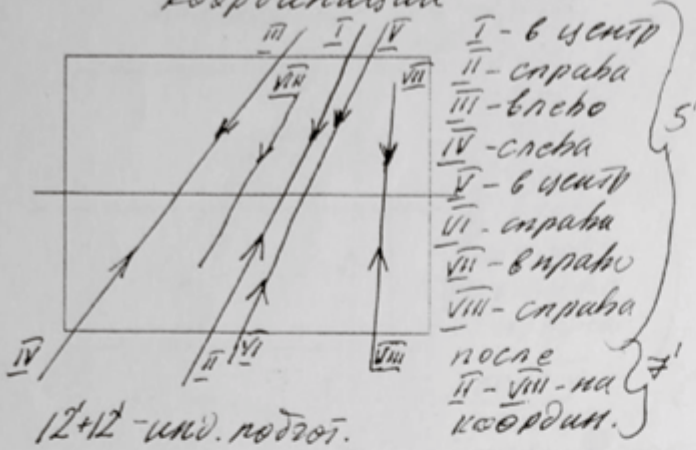 координации
III I V
VIII VII
I - в центр
II - справа
III - влево
IV - слева
V - в центр
VI - справа
VII - вправо
VIII - справа
5'
IV II VI VIII
после
II - VIII - на
коордын.
7'
12'+12' - инд. подгот.